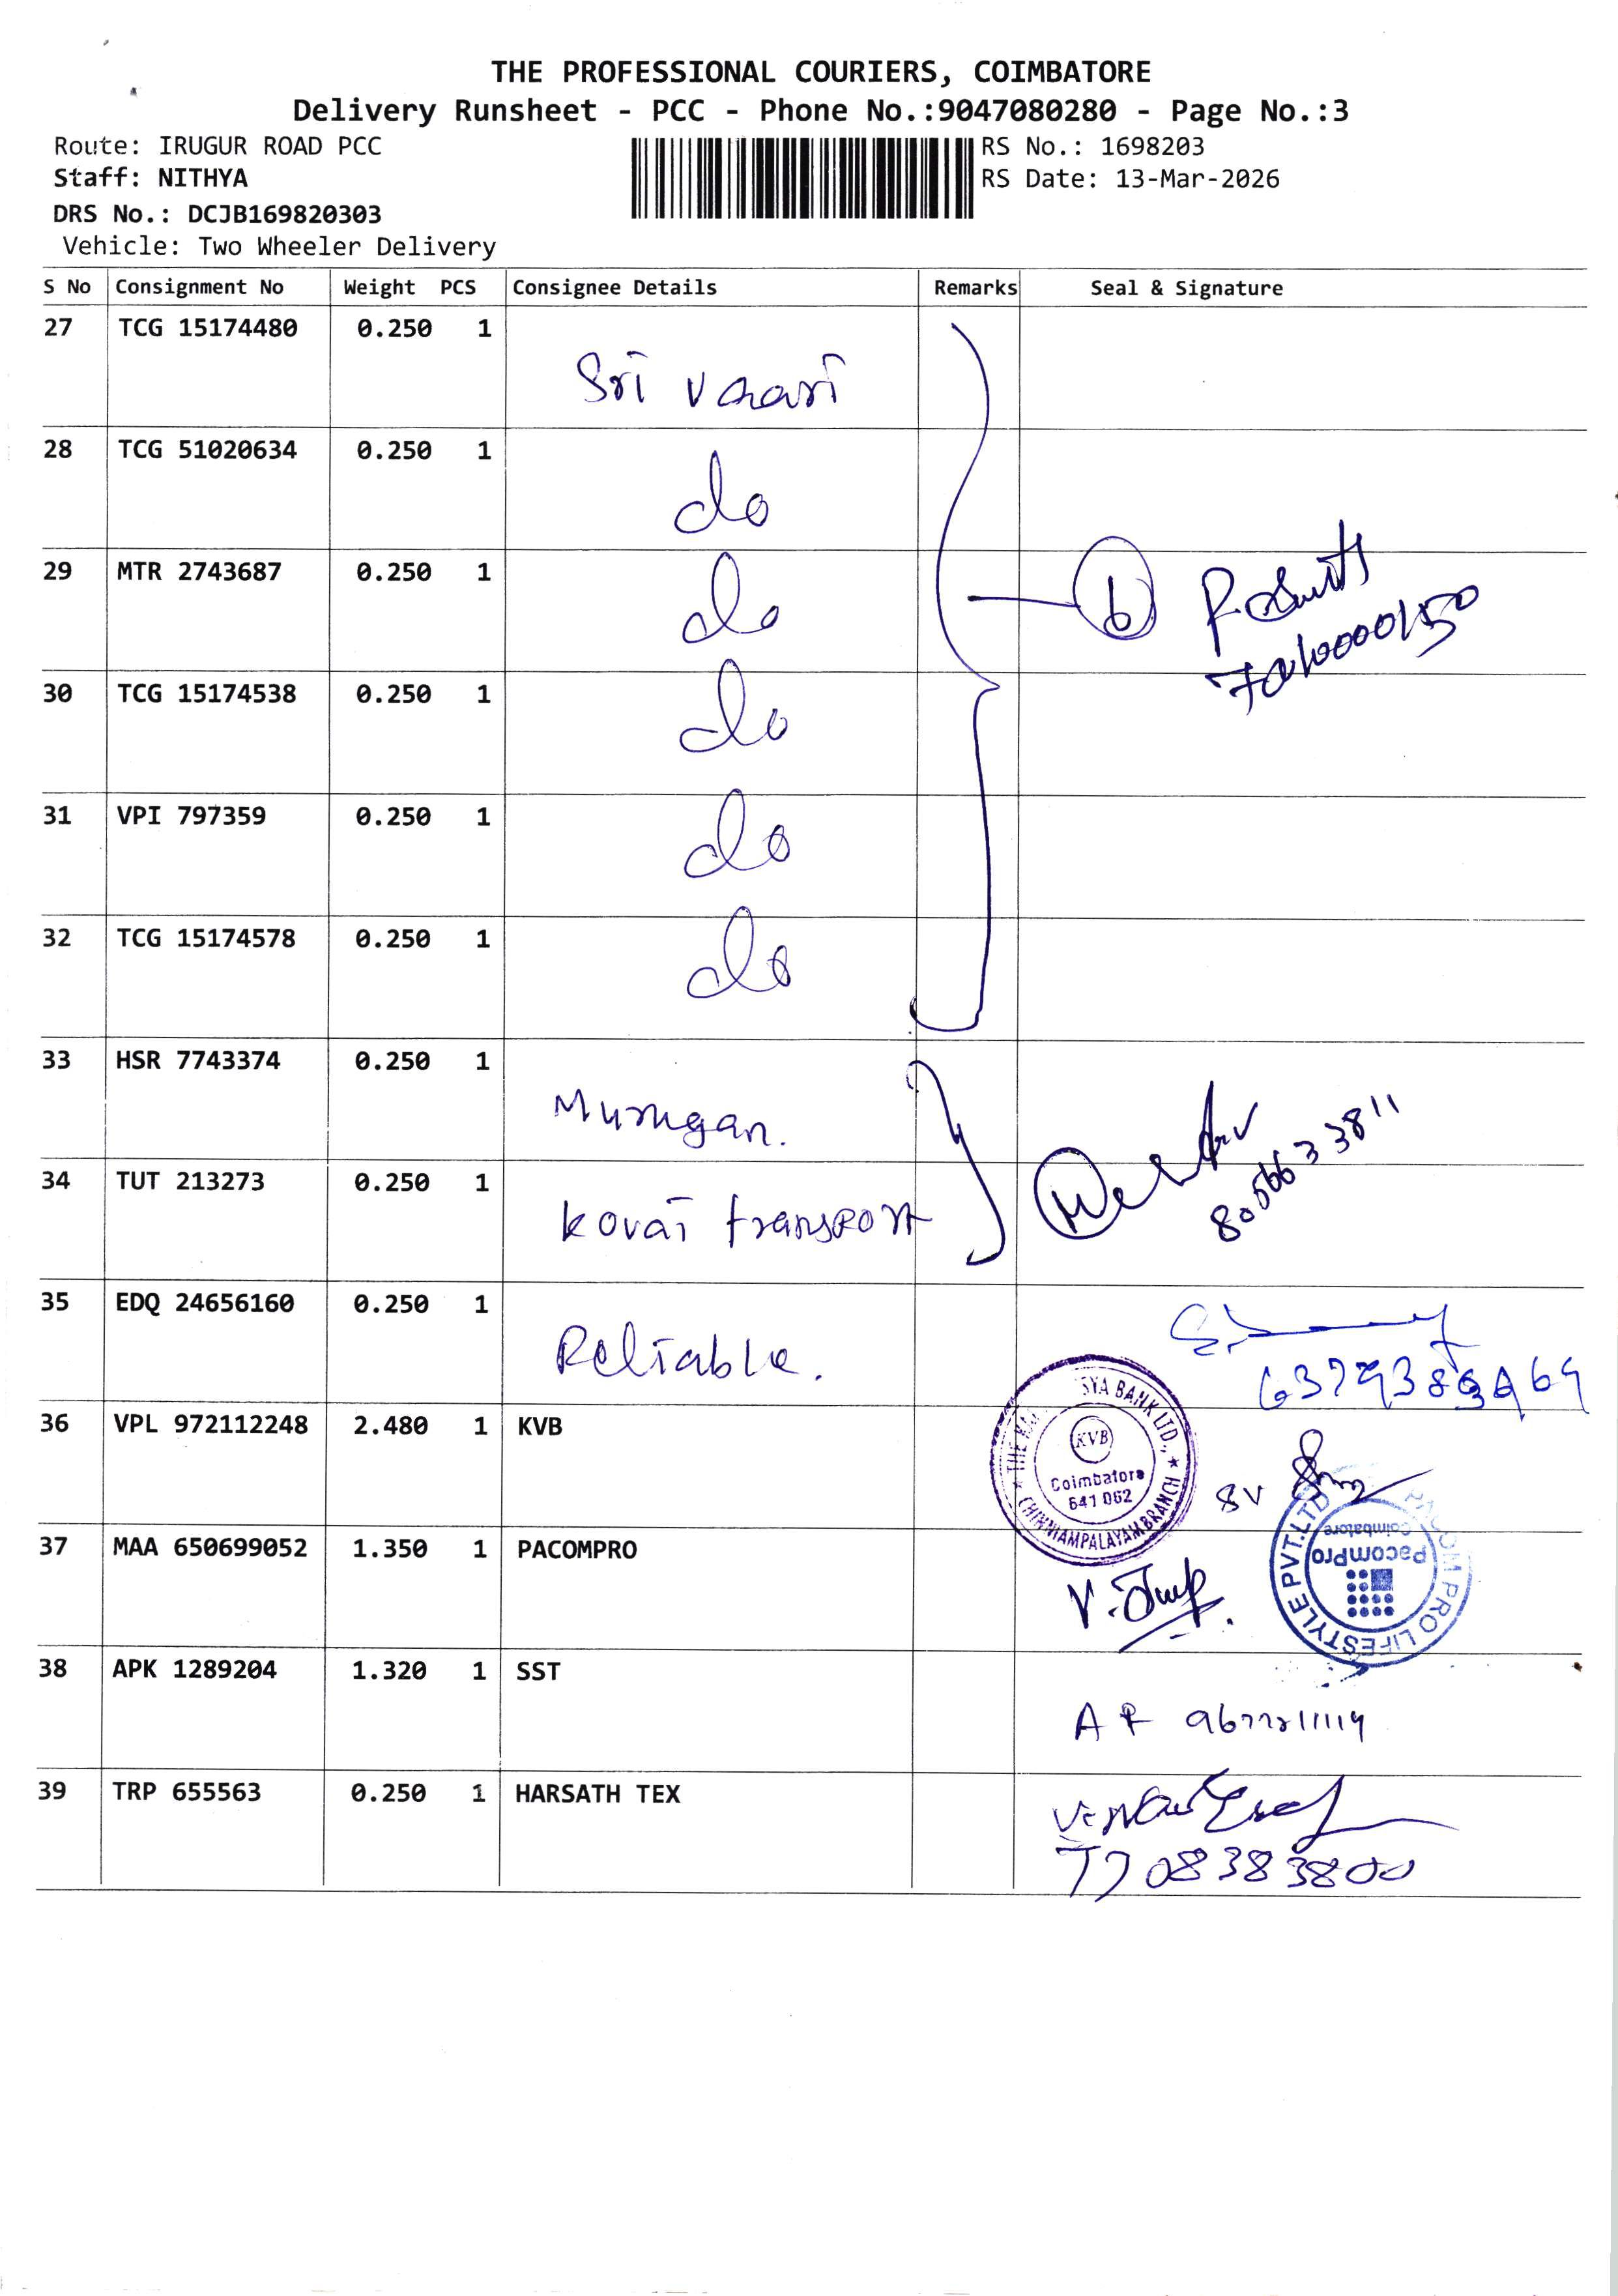 THE PROFESSIONAL COURIERS, COIMBATORE
Delivery Runsheet - PCC - Phone No.:9047080280 - Page No.:3
Route: IRUGUR ROAD PCC
RS No.: 1698203
Staff: NITHYA
RS Date: 13-Mar-2026
DRS No.: DCJB169820303
Vehicle: Two Wheeler Delivery
S No Consignment No Weight PCS Consignee Details Remarks Seal & Signature
27 TCG 15174480 0.250 1
Sri Vaari
28 TCG 51020634 0.250 1
do
29 MTR 2743687 0.250 1
do
6
30 TCG 15174538 0.250 1
do
31 VPI 797359 0.250 1
do
32 TCG 15174578 0.250 1
do
33 HSR 7743374 0.250 1
Murugan.
34 TUT 213273 0.250 1
Kovai transport
35 EDQ 24656160 0.250 1
Reliable.
36 VPL 972112248 2.480 1 KVB
SYA BANK LTD.,
KVB
Coimbatore
641 062
CHINNIAMPALAYAM BRANCH
37 MAA 650699052 1.350 1 PACOMPRO
PACOM PRO LIFESTYLE PVT.LTD
Coimbatore
PacomPro
38 APK 1289204 1.320 1 SST
39 TRP 655563 0.250 1 HARSATH TEX
7708383800